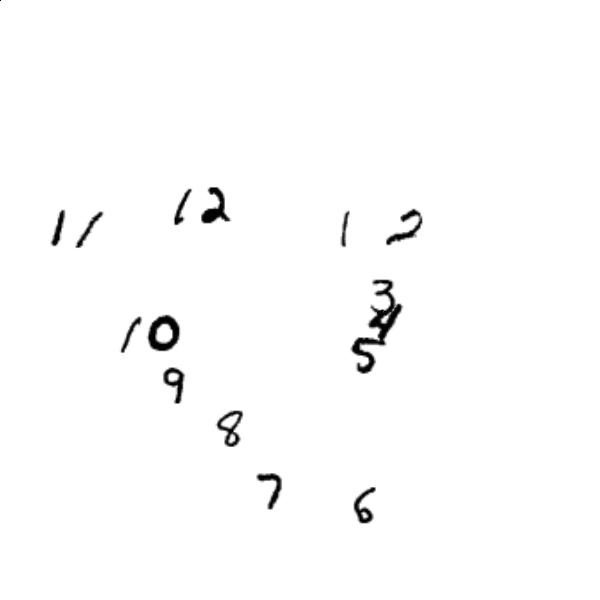 11 12 1 2
3
10 4
5
9
8
7 6